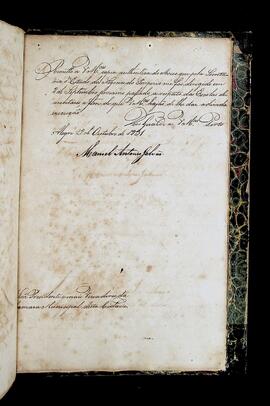 Remetto a V.Mces copia authentica do Aviso que pela Secretaria
d'Estado dos Negocios do Imperio me foi dirigido em
2 de Septembro proximo passado, a respeito das Escolas de
a fim de que V.Mces hajão de lhe dar a devida
execução.
Deos Guarde a V.Mces Porto
Alegre de Outubro de 1831
Manuel Antonio Galvão
Presidente e mais Vereadores da
Camara Municipal desta Cidade